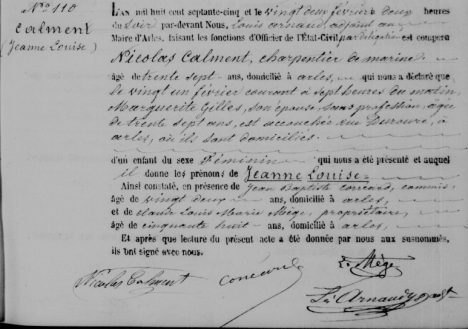 N° 110
Calment
(Jeanne Louise)
L'an mil huit cent septante-cinq et le vingt deux février deux heures
du soir par-devant Nous, Louis Arnaud adjoint au
Maire d'Arles, faisant les fonctions d'Officier de l'État-Civil par délégation est comparu
Nicolas Calment, charpentier de marine
âgé de trente sept ans, domicilié à arles, qui nous a déclaré que
le vingt un février courant à sept heures du matin,
Marguerite Gilles, son épouse, sans profession, âgée
de trente sept ans, est accouchée rue du roure, à
arles, où ils sont domiciliés
d'un enfant du sexe féminin qui nous a été présenté et auquel
il donne les prénoms de Jeanne Louise
Ainsi constaté, en présence de Jean Baptiste commis,
âgé de vingt deux ans, domicilié à arles,
et de claude Louis Marie Mège, propriétaire,
âgé de cinquante huit ans, domicilié à arles.
Et après que lecture du présent acte a été donnée par nous aux susnommés,
ils ont signé avec nous.
Nicolas Calment
L. Mège
Ls Arnaud adjt